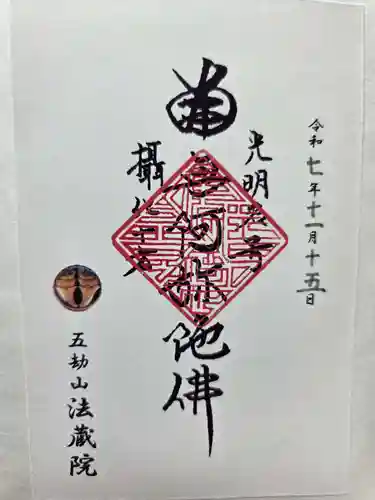 令和七年十一月十五日
光明名号
南無阿弥陀佛
攝化十方
五劫山 法蔵院